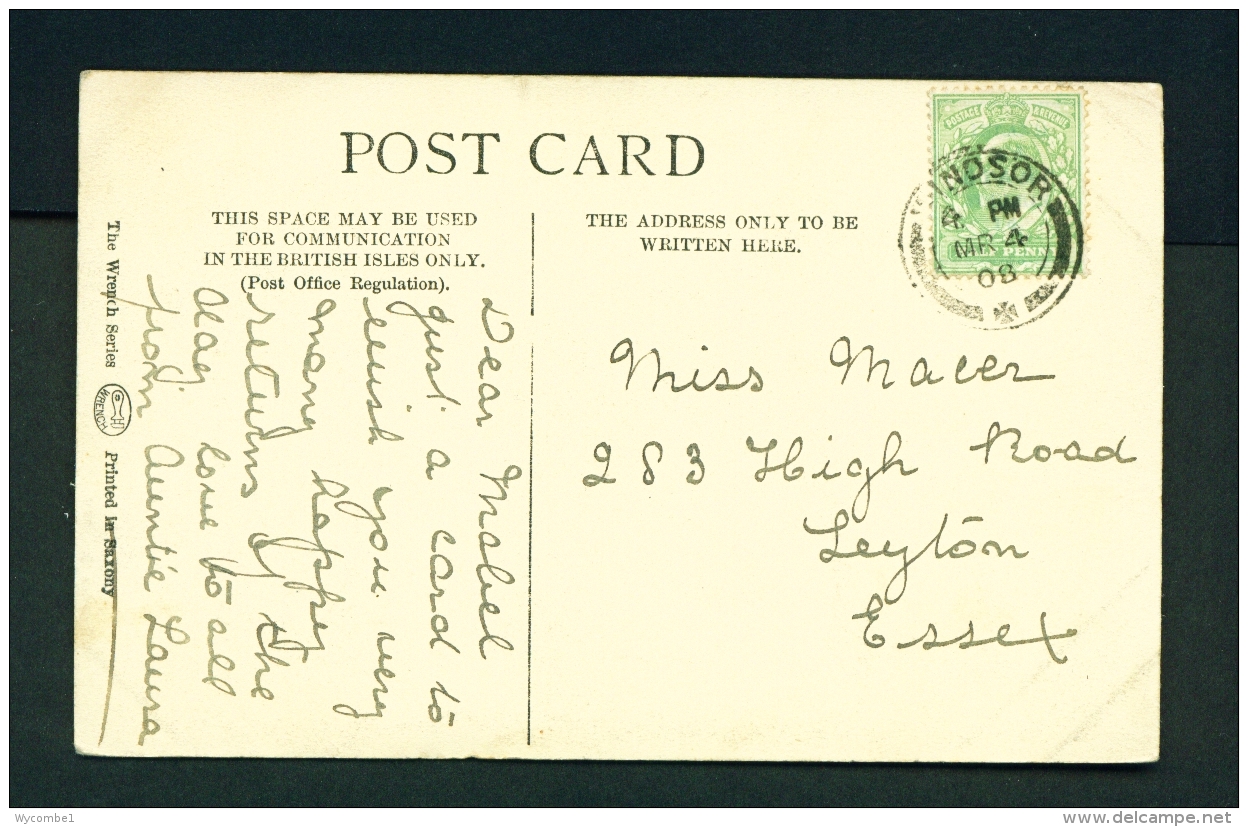 POST CARD
THIS SPACE MAY BE USED
FOR COMMUNICATION
IN THE BRITISH ISLES ONLY.
(Post Office Regulation).
THE ADDRESS ONLY TO BE
WRITTEN HERE.
POSTAGE & REVENUE
INDSOR
4 PM
MR 4
08
LF PENNY
Dear Mabel
just a card to
wish you very
many happy
returns of the
day love to all
from Auntie Laura
Miss Macer
283 High Road
Leyton
Essex
The Wrench Series
WRENCH
Printed in Saxony
Wycombe1
delcampe.net